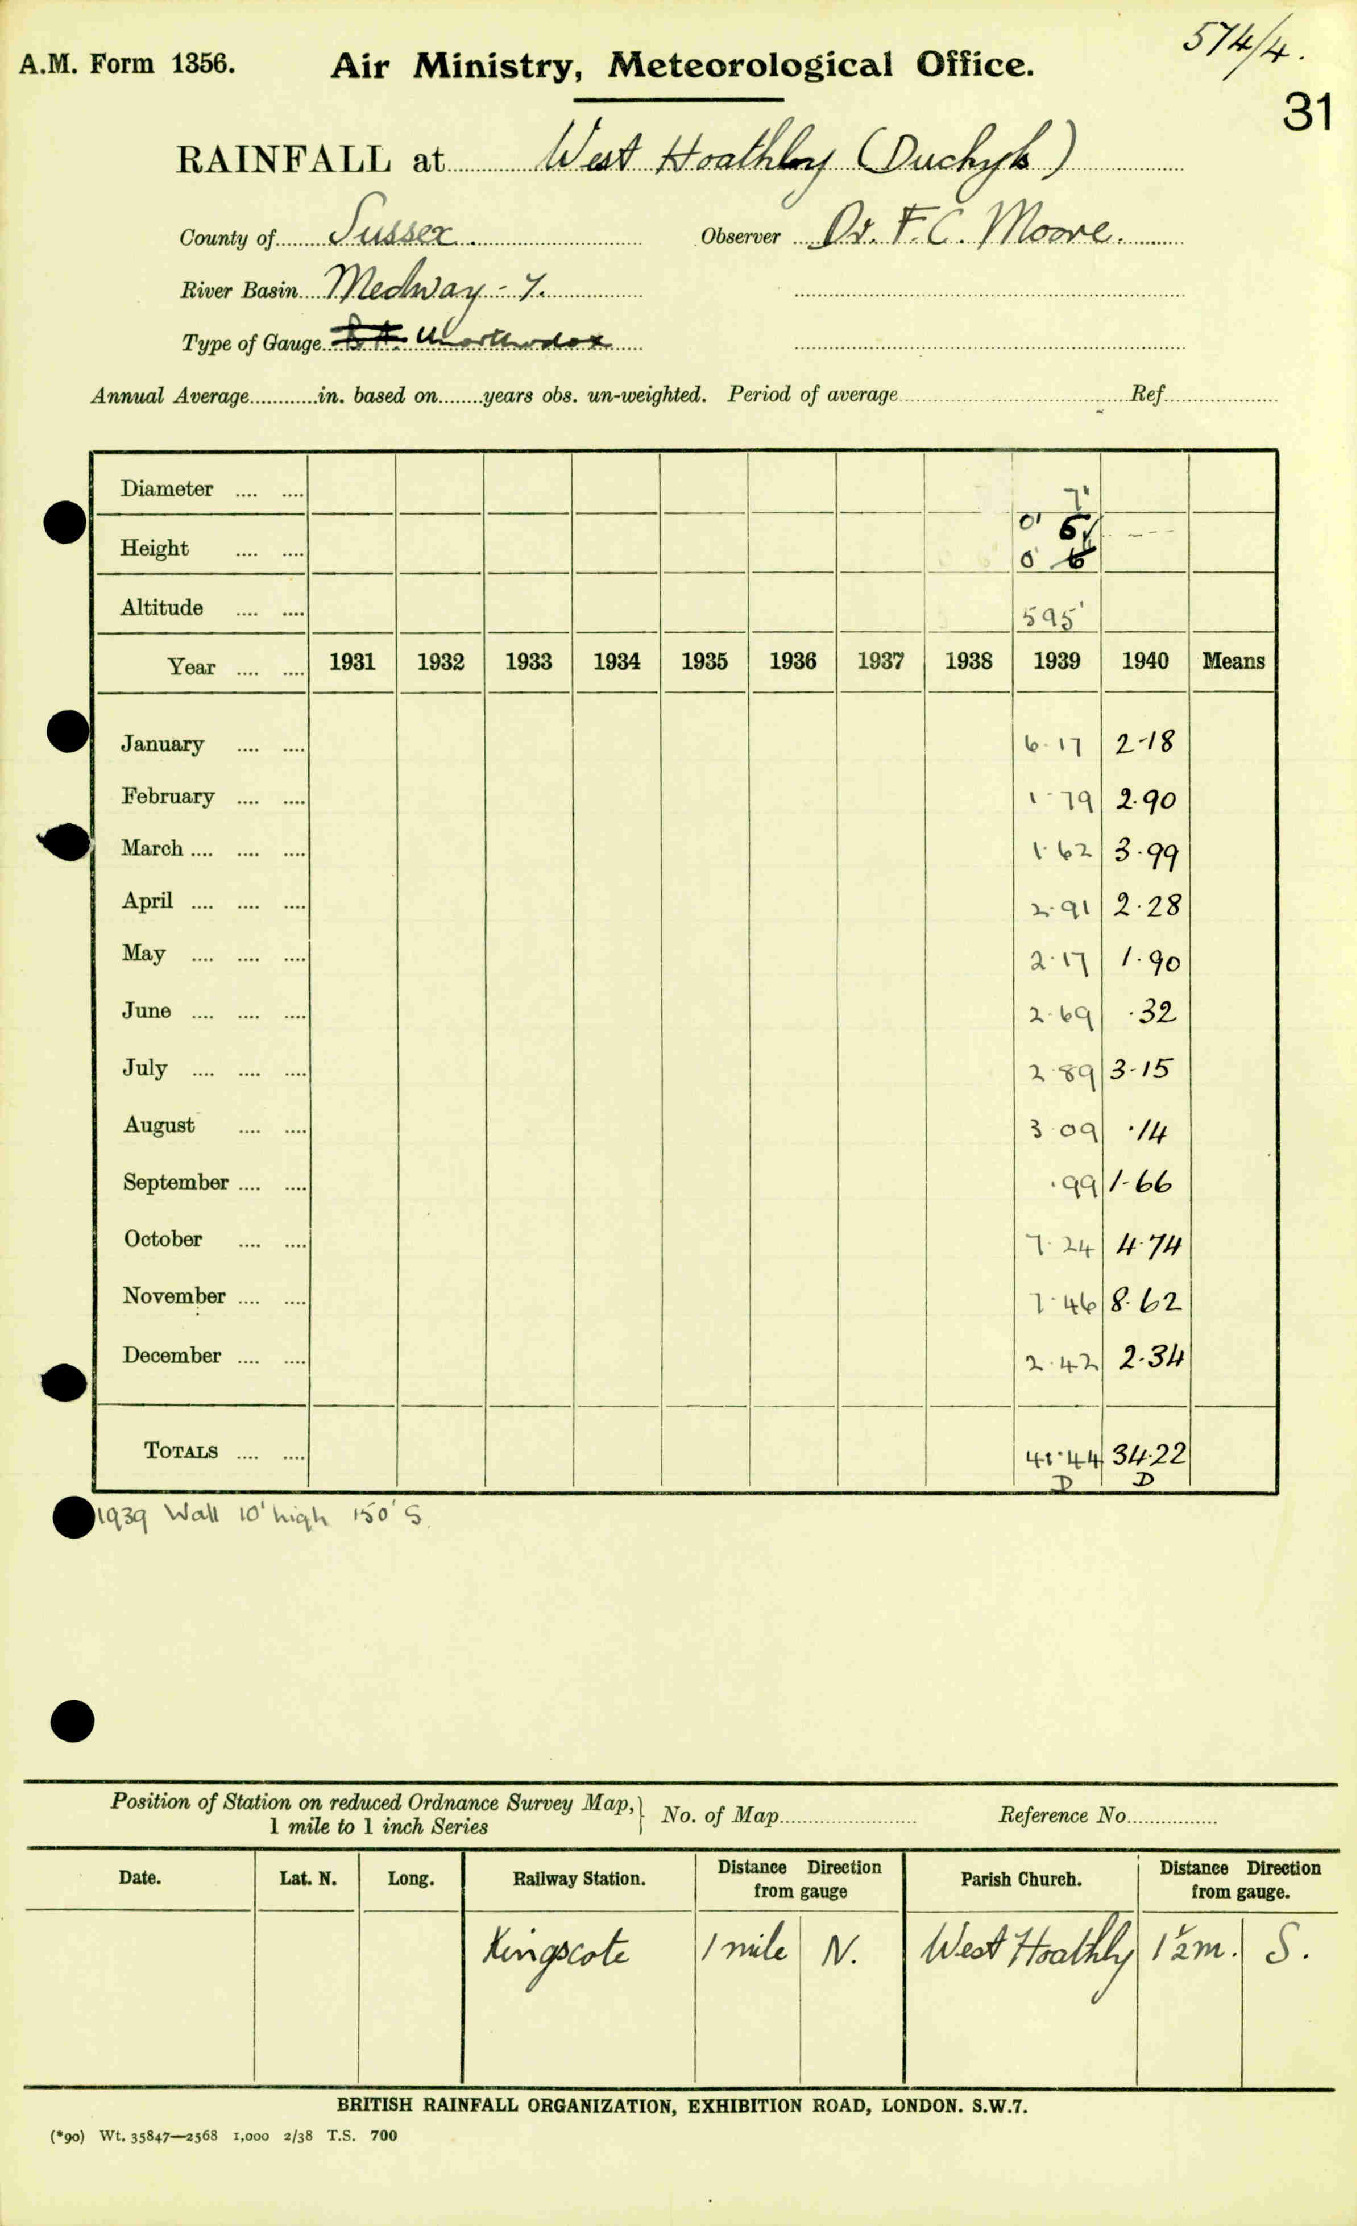 574/4.
A.M. Form 1356. Air Ministry, Meteorological Office.
31
RAINFALL at West Hoathly (Duckyls)
County of Sussex. Observer Dr. F.C. Moore.
River Basin Medway - 7.
Type of Gauge Unorthodox
Annual Average............in. based on........years obs. un-weighted. Period of average.................... Ref....................
Diameter .... .... 7"
Height .... .... 0' 5"
0' 6
Altitude .... .... 595'
Year .... .... 1931 1932 1933 1934 1935 1936 1937 1938 1939 1940 Means
January .... .... 6.17 2.18
February .... .... 1.79 2.90
March .... .... .... 1.62 3.99
April .... .... .... 2.91 2.28
May .... .... .... 2.17 1.90
June .... .... .... 2.69 .32
July .... .... .... 2.89 3.15
August .... .... 3.09 .14
September .... .... .99 1.66
October .... .... 7.24 4.74
November .... .... 7.46 8.62
December .... .... 2.42 2.34
TOTALS .... .... 41.44 34.22
D D
1939 Wall 10' high 150' S
Position of Station on reduced Ordnance Survey Map, } No. of Map.................... Reference No....................
1 mile to 1 inch Series
Date. Lat. N. Long. Railway Station. Distance Direction from gauge Parish Church. Distance Direction from gauge.
Kingscote 1 mile N. West Hoathly 1½ m. S.
BRITISH RAINFALL ORGANIZATION, EXHIBITION ROAD, LONDON. S.W.7.
(*90) Wt. 35847—2568 1,000 2/38 T.S. 700